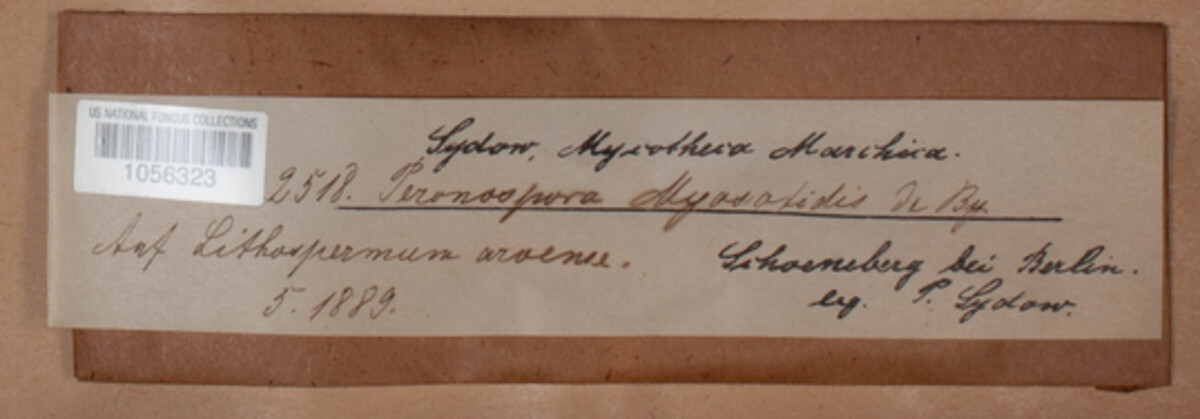 US NATIONAL FUNGUS COLLECTIONS
1056323
Sydow, Mycotheca Marchica.
2518. Peronospora Myosotidis de By.
Auf Lithospermum arvense.
5. 1889.
Schoeneberg bei Berlin.
leg. P. Sydow.